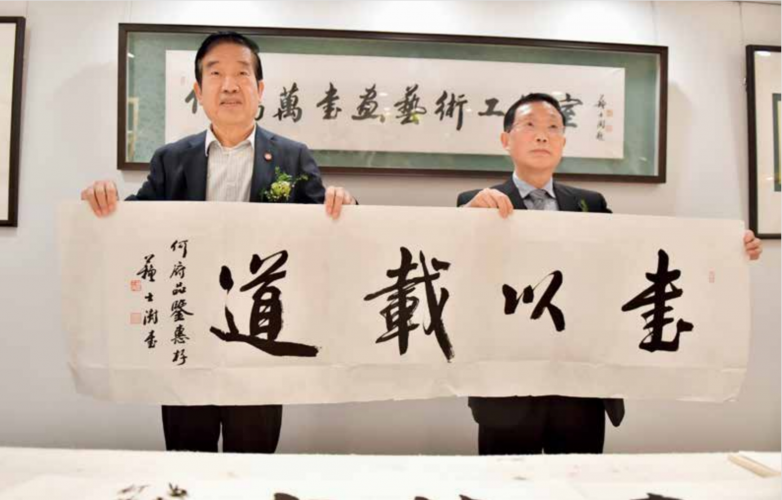 萬書畫藝術工 室
蘇士澍題
書以載道
何府品鑒惠存
蘇士澍書